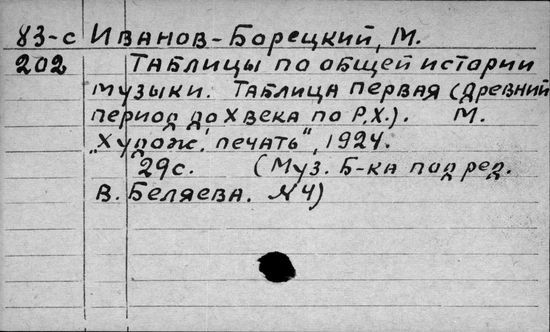 83-с Иванов-Борецкий, М.
202 Таблицы по общей истории
музыки. Таблица первая (Древний
период до X века по Р.Х.). М.
„Худож. печать", 1924.
29с. (Муз. Б-ка под ред.
В. Беляева. №4)